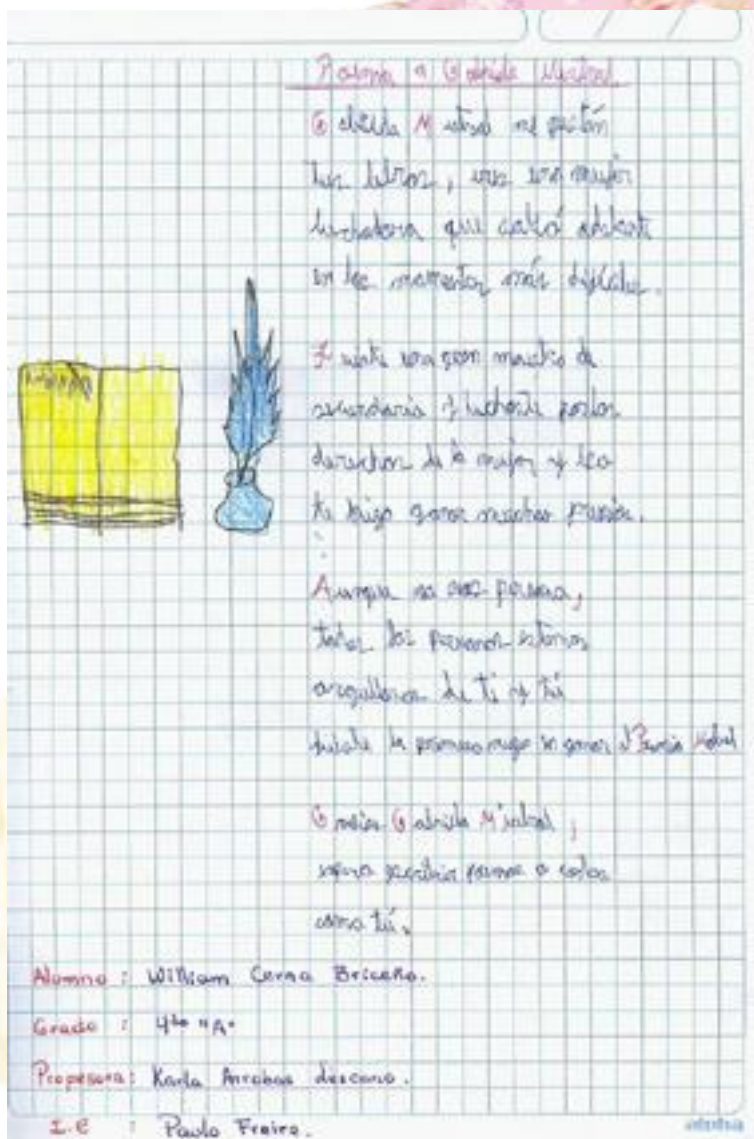 Poema a Gabriela Mistral
Gabriela Mistral me gustan
tus libros, eres una mujer
luchadora que salió adelante
en los momentos más difíciles.
Fuiste una gran maestra de
secundaria y luchaste por los
derechos de la mujer y eso
te hizo ganar muchos premios.
Aunque no seas peruana,
todos los peruanos estamos
orgullosos de ti y tú
fuiste la primera mujer en ganar el Premio Nobel
Gracias Gabriela Mistral,
espero escribir poemas
como tú.
Alumno : William Cerna Briceño.
Grado : 4to "A"
Profesora : Karla Arrobas
I.E : Paulo Freire.